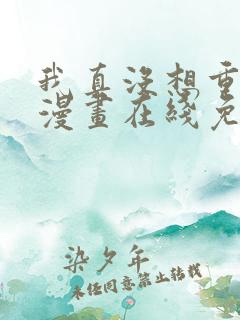 我真没想重
漫畫在綫免
染夕年
未经同意禁止转载